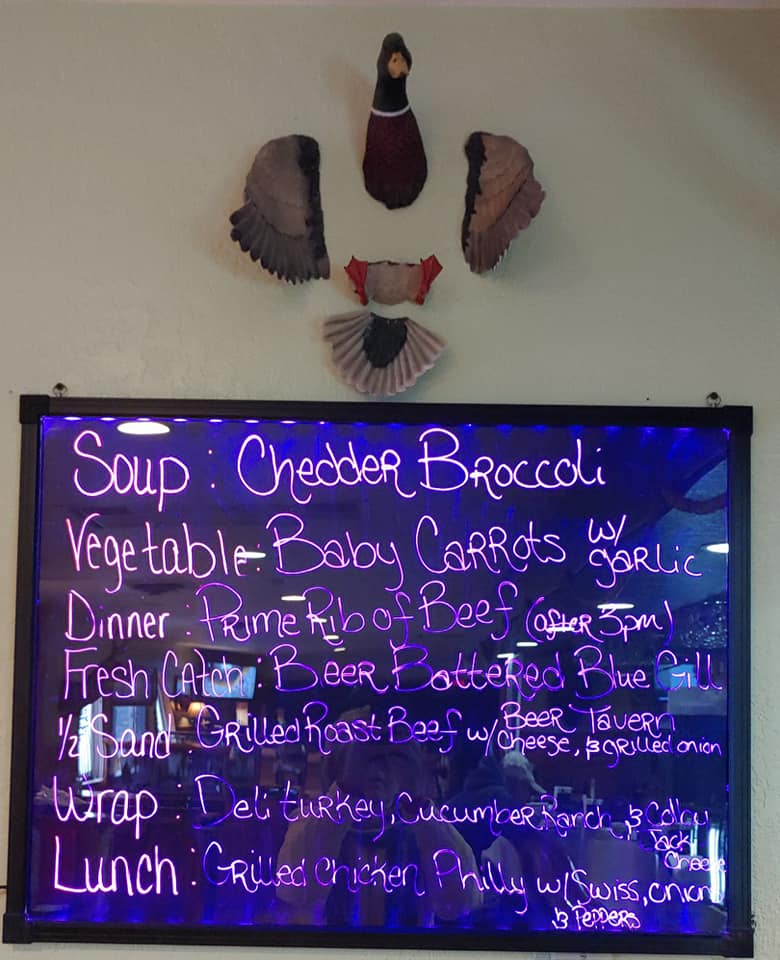 Soup : Chedder Broccoli
Vegetable : Baby Carrots w/ garlic
Dinner : Prime Rib of Beef (after 3pm)
Fresh Catch : Beer Battered Blue Gill
1/2 Sand : Grilled Roast Beef w/ Beer Tavern
Cheese, & grilled onion
Wrap : Deli turkey, Cucumber Ranch & Colby
Jack
Cheese
Lunch : Grilled Chicken Philly w/ Swiss, onion
& Peppers